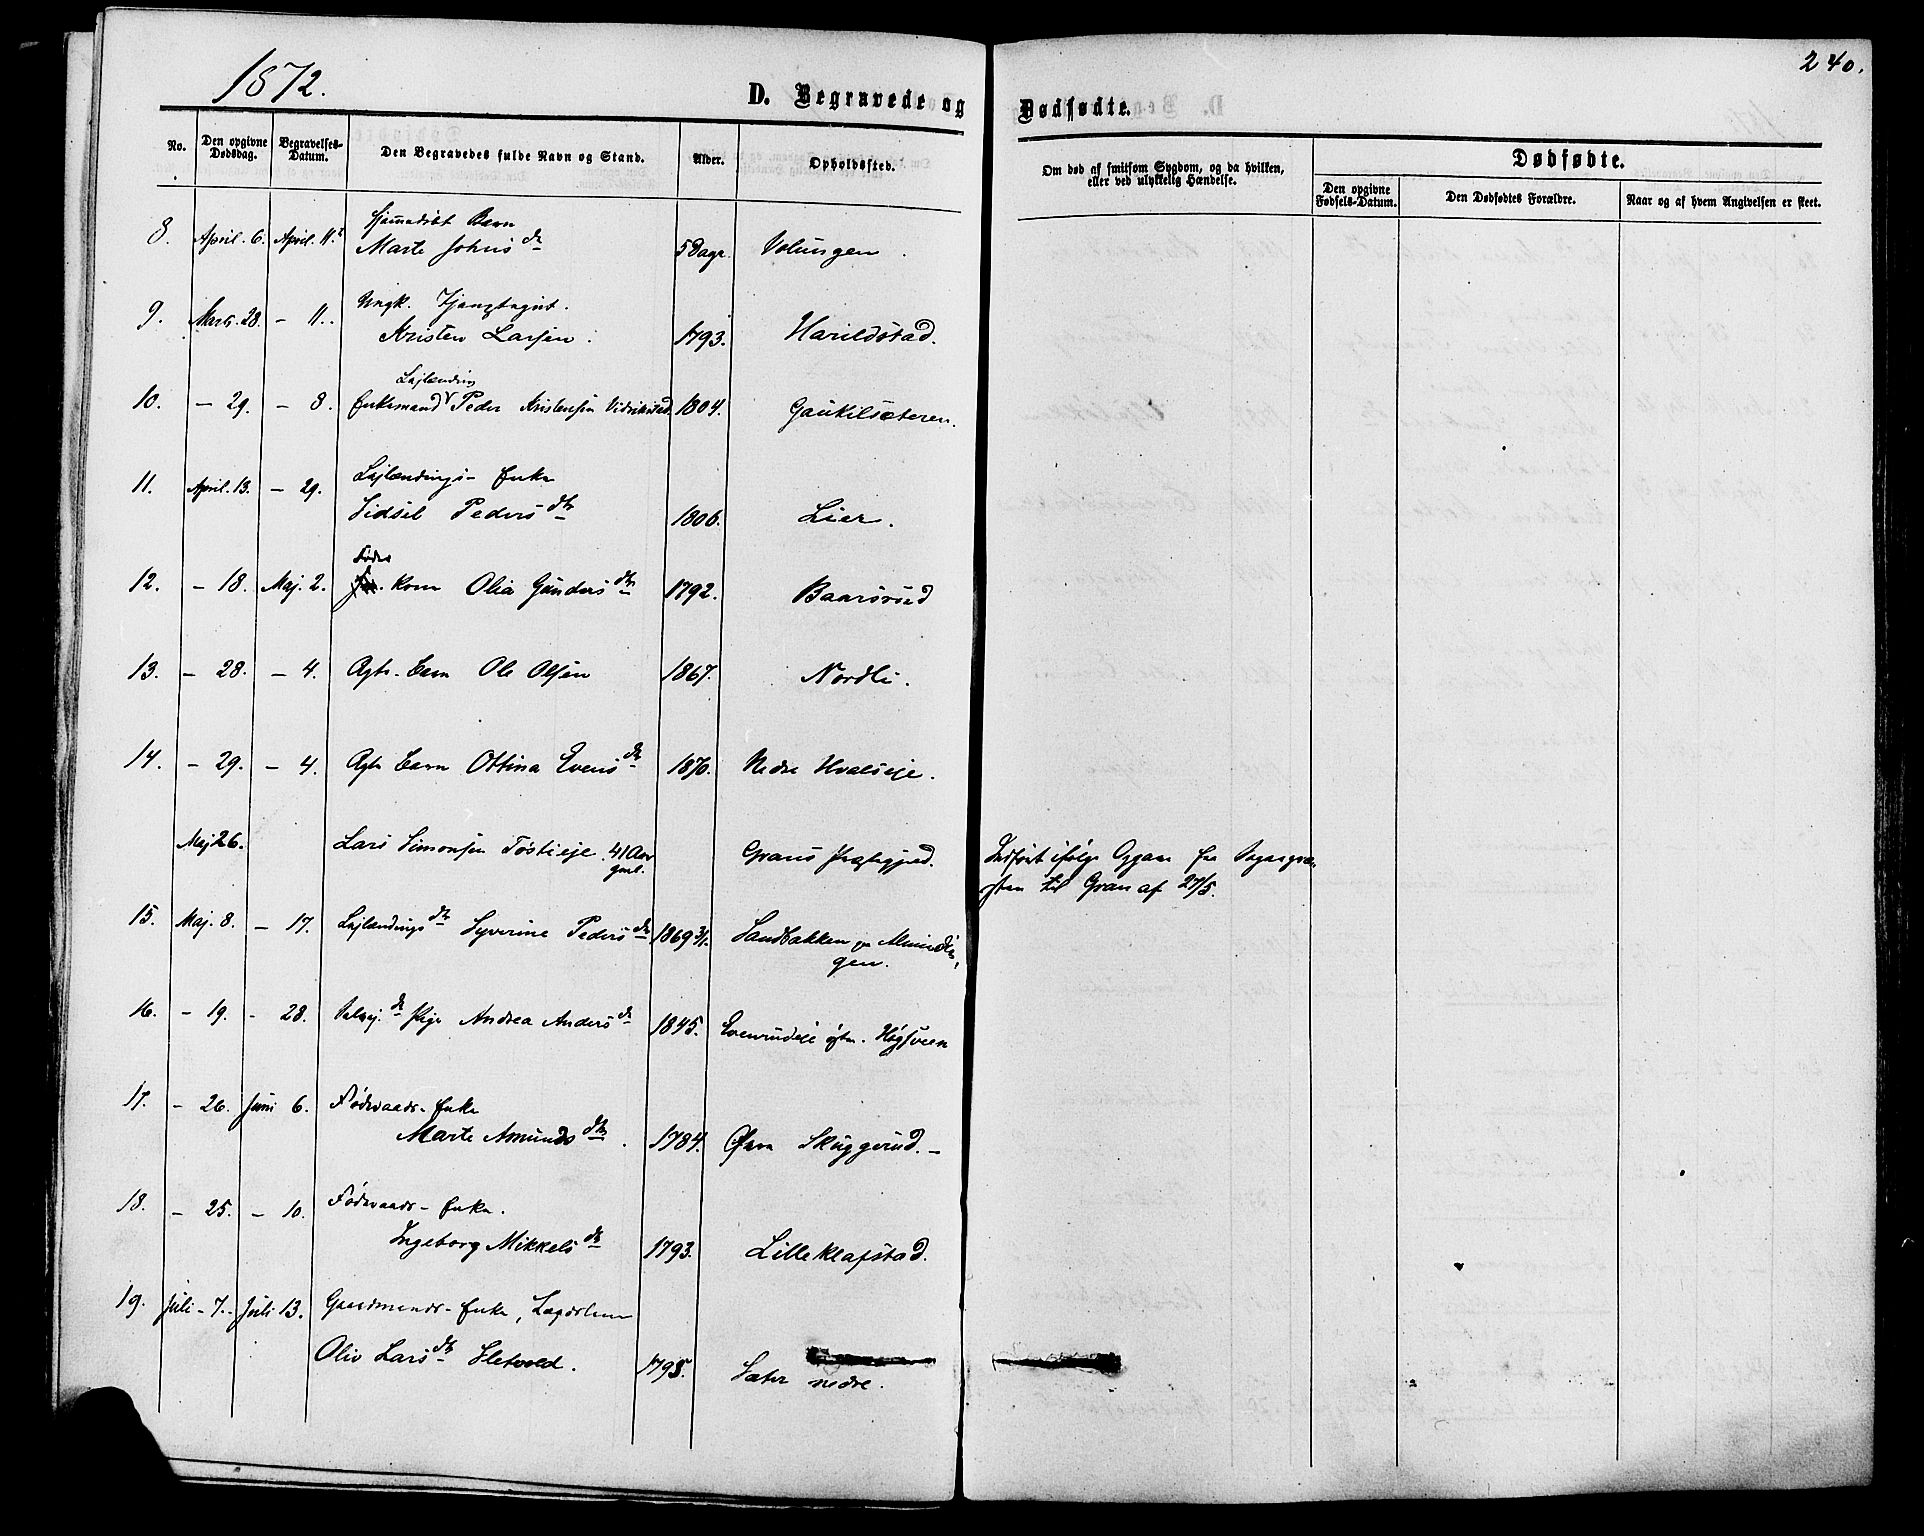 1872.
240.
D. Begravede og Dødfødte.
No.
Den opgivne Dødsdag.
Begravelses-Datum.
Den Begravedes fulde Navn og Stand.
Alder.
Opholdssted.
Om død af smitsom Sygdom, og da hvilken, eller ved ulykkelig Hændelse.
Dødfødte.
Den opgivne Fødsels-Datum.
Den Dødfødtes Forældre.
Naar og af hvem Angivelsen er skeet.
8. April. 6. April. 11. Hjemmedøbt Barn
Marte Johnsdtr 5 Dage. Volungen.
9. Marts. 28. – 11. Ungk.
Kristen Larsen. 1793. Harildstad.
10. – 29. – 8. Enkemand Leilænding Peder Kristensen 1804. Gaukilsæteren.
11. April. 13. – 29. Leilændings- Enke
Sidsel Pedersdtr 1806. Lier.
12. – 18. Maj. 2. Kone Olia Gundersdtr 1792. Baarsrud
13. – 28. – 4. Ægte. Barn Ole Olsen 1867. Nordli.
14. – 29. – 4. Ægte Barn Ottina Evensdtr 1870. Nedre Hvalseje.
Maj 26. Lars Simonsen Tøstieje. 41 Aar gml. Grans Præstegjeld. Indført ifølge Opgave fra Sognepræ-
sten til Gran af 27/5.
15. Maj. 8. – 17. Leilændings dtr Syverine Pedersdtr 1869 3/1. Sandbakken Almindin-
gen.
16. – 19. – 28. Pige Andrea Andersdtr 1845. Evenrudeie Høgsveen
17. – 26. Juni 6. Føderaads- Enke
Marte Amundsdtr. 1784. Øvre Skuggerud. –
18. – 25. – 10. Føderaads- Enke.
Ingeborg Mikkelsdtr 1793. Lilleklafstad.
19. Juli – 7. Juli 13. Gaardmands- Enke, Lægdslem
Oliv Larsdtr Sletvold. 1795. Sæter nedre.